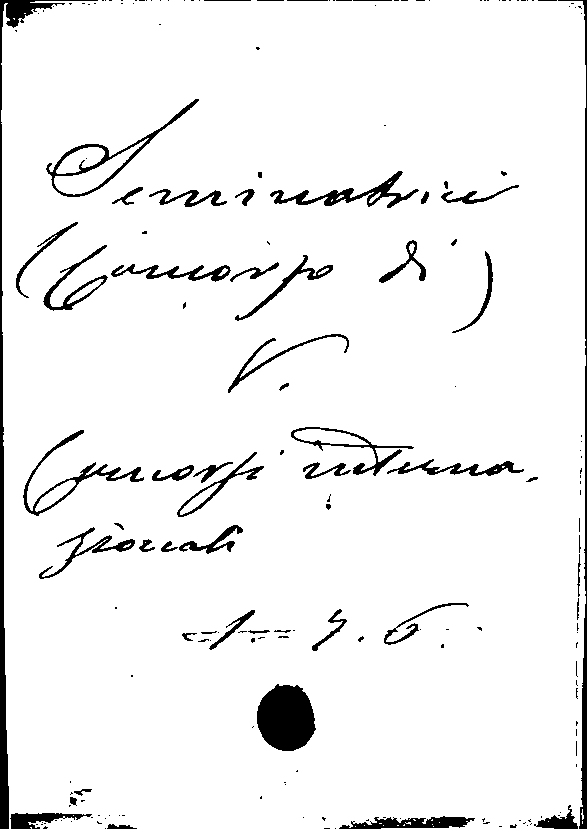 Seminatrici
(Concorso di)
V.
Concorsi interna-
zionali